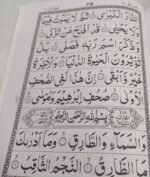 النَّارَ الْكُبْرٰى ۚ ثُمَّ لَا يَمُوْتُ فِيْهَا
وَلَا يَحْيٰى ؕ قَدْ اَفْلَحَ مَنْ تَزَكّٰى ۙ
وَذَكَرَ اسْمَ رَبِّهٖ فَصَلّٰى ؕ بَلْ
تُؤْثِرُوْنَ الْحَيٰوةَ الدُّنْيَا ۖ وَالْاٰخِرَةُ
خَيْرٌ وَّاَبْقٰى ؕ اِنَّ هٰذَا لَفِى الصُّحُفِ
الْاُوْلٰى ۙ صُحُفِ اِبْرٰهِيْمَ وَمُوْسٰى
بِسْمِ اللّٰهِ الرَّحْمٰنِ الرَّحِيْمِ
وَالسَّمَآءِ وَالطَّارِقِ ۙ وَمَاۤ اَدْرٰىكَ
مَا الطَّارِقُ ۙ النَّجْمُ الثَّاقِبُ